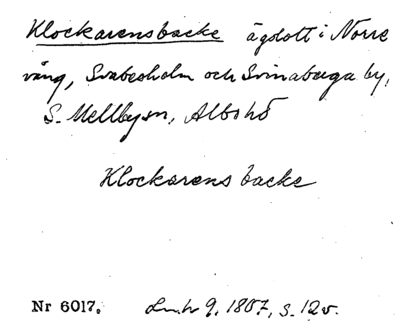 Klockarensbacke ägolott i Norre
väng, Svabesholm och Svinaberga by,
S. Mellby sn, Albo hd
Klockarens backe
Nr 6017. Lm. h 9, 1807, s. 12 v.